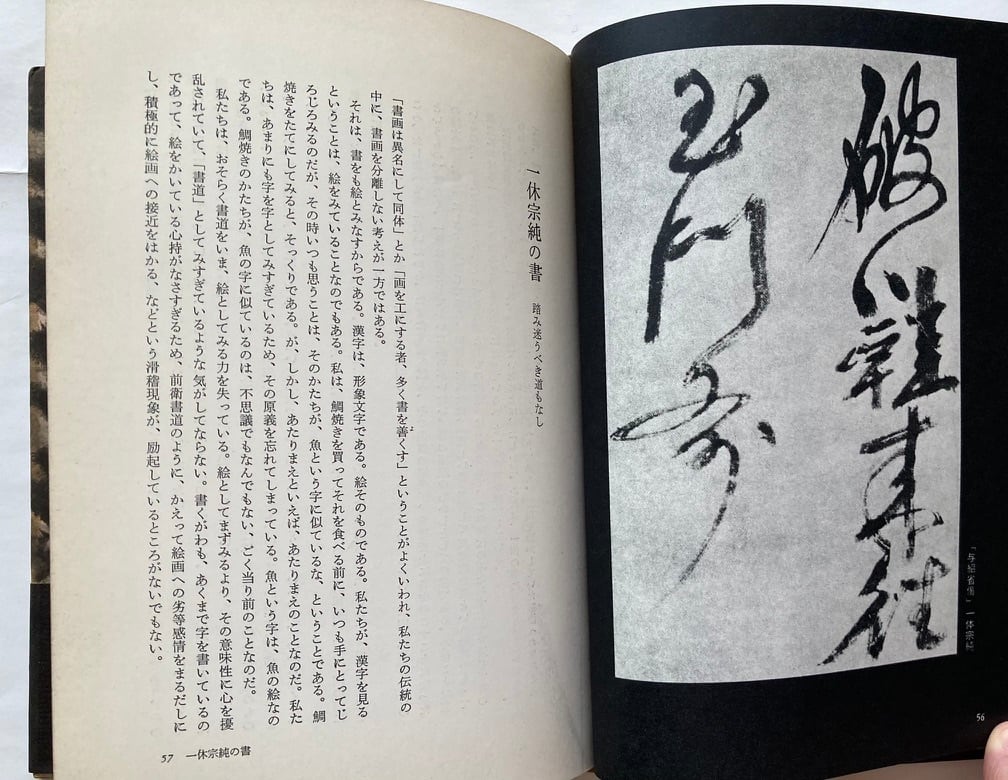 破鞋来往
玉門
「与紹省偈」 一休宗純
56
一休宗純の書 踏み迷うべき道もなし
「書画は異名にして同体」とか「画を工にする者、多く書を善くす」ということがよくいわれ、私たちの伝統の
中に、書画を分離しない考えが一方ではある。
それは、書をも絵とみなすからである。漢字は、形象文字である。絵そのものである。私たちが、漢字を見る
ということは、絵をみていることなのでもある。私は、鯛焼きを買ってそれを食べる前に、いつも手にとってじ
ろじろみるのだが、その時いつも思うことは、そのかたちが、魚という字に似ているな、ということである。鯛
焼きをたてにしてみると、そっくりである。が、しかし、あたりまえといえば、あたりまえのことなのだ。私た
ちは、あまりにも字を字としてみすぎているため、その原義を忘れてしまっている。魚という字は、魚の絵なの
である。鯛焼きのかたちが、魚の字に似ているのは、不思議でもなんでもない、ごく当り前のことなのだ。
私たちは、おそらく書道をいま、絵としてみる力を失っている。絵としてまずみるより、その意味性に心を擾
乱されていて、「書道」としてみすぎているような気がしてならない。書くがわも、あくまで字を書いているの
であって、絵をかいている心持がなさすぎるため、前衛書道のように、かえって絵画への劣等感情をまるだしに
し、積極的に絵画への接近をはかる、などという滑稽現象が、励起しているところがないでもない。
57 一休宗純の書